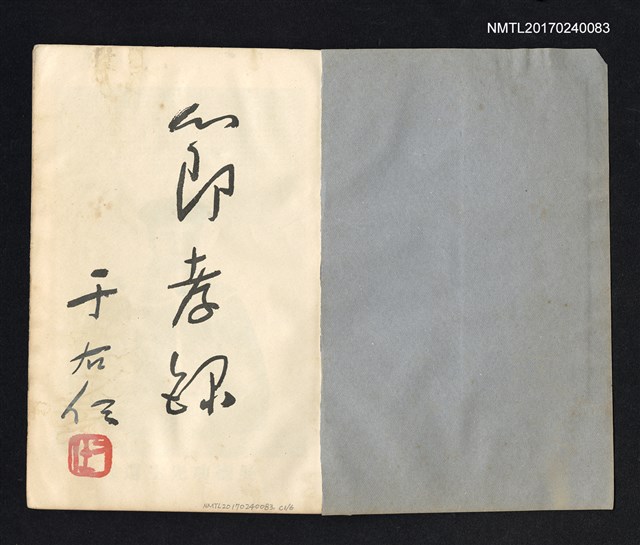 NMTL20170240083
節孝錄
于右任
NMTL20170240083